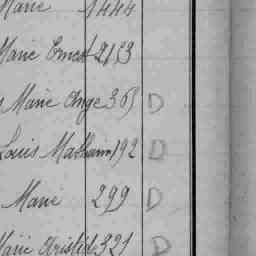 Marie 1444
Marie Ernest 2153
Marie Ange 365 D
Louis Mathurin 192 D
Marie 299 D
Marie Aristide 321 D